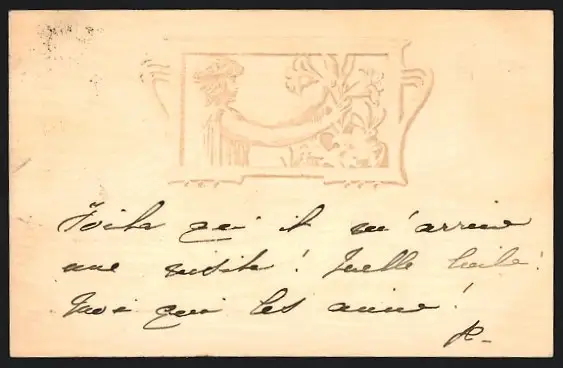 Voila qui il m'arrive
une visite! Quelle tuile!
Moi qui les aime!
R-